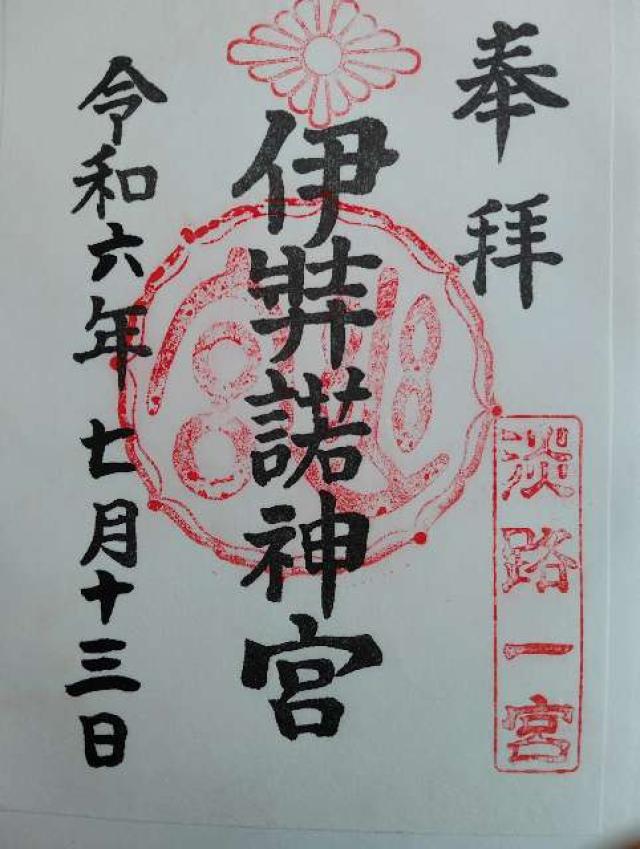 奉拝
淡路一宮
伊弉諾神宮
令和六年七月十三日